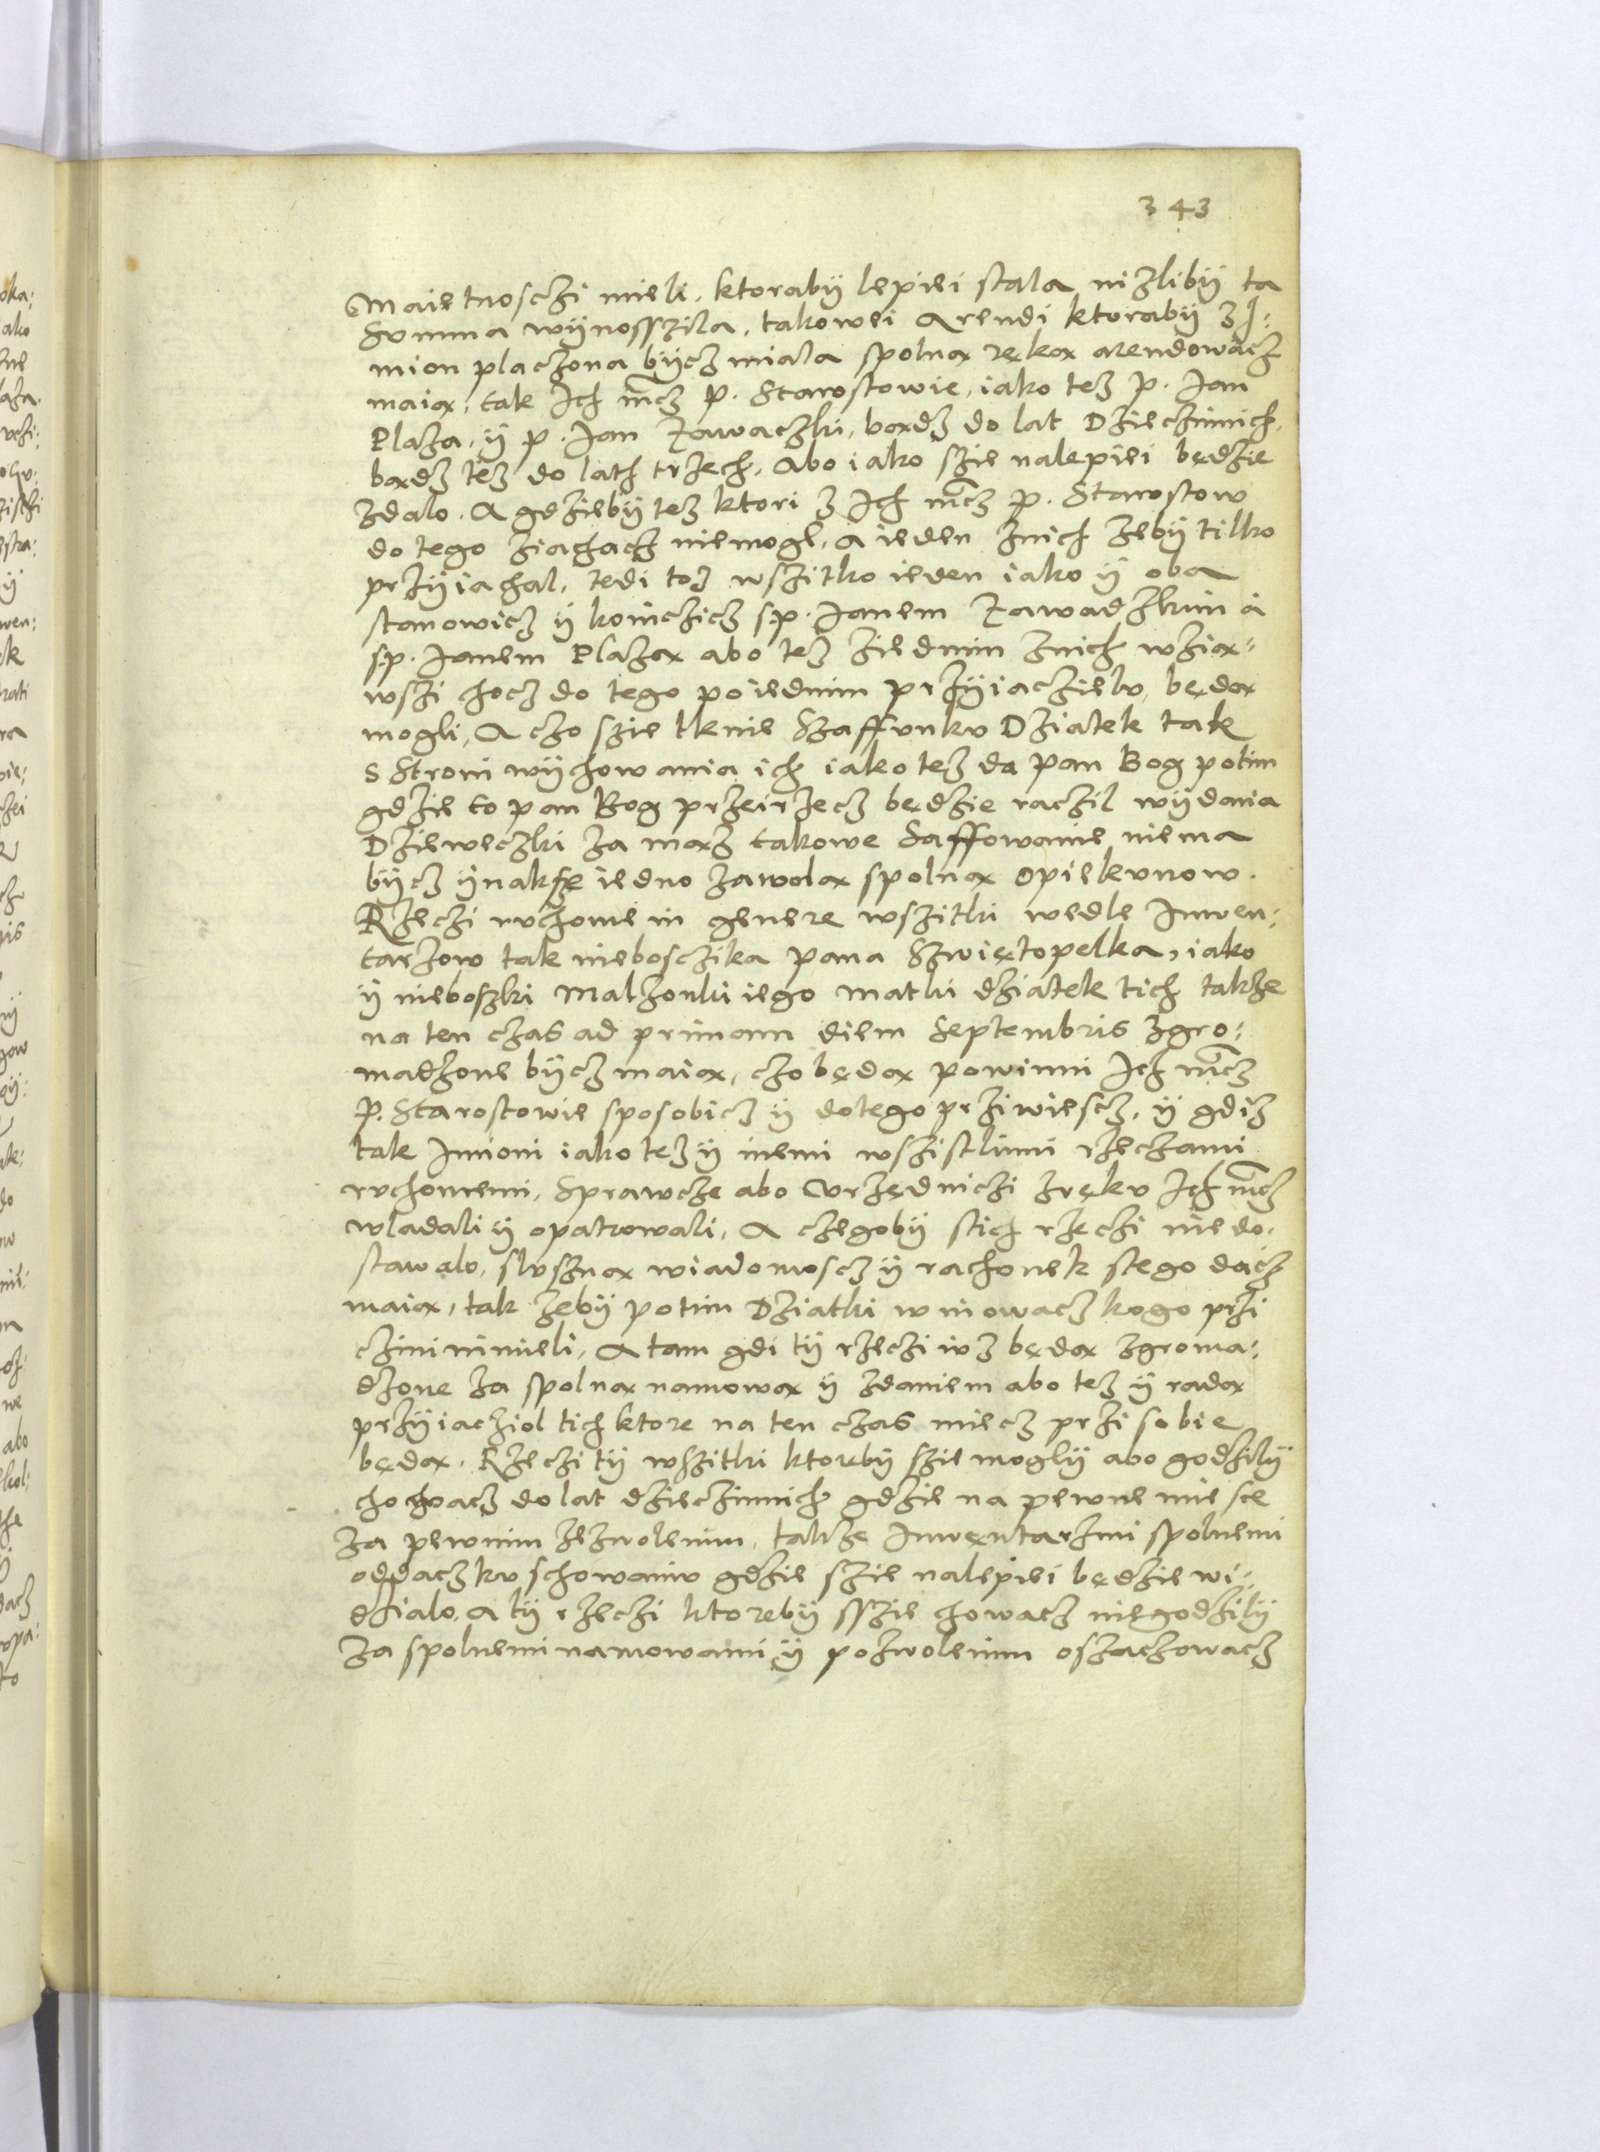 343
Maietnosczi mieli, ktorabÿ lepiei stala niżlibÿ ta
Summa wÿnosszila, takowei Arendi ktorabÿ z I:
mion placzona bÿcz miala spolną ręką arendowacz
maią, tak Ich mcz P. Starostowie, iako tez P. Ian
Plaza, ÿ P. Jan Zawaczki, bądz do lat Dzieczinnich,
bądz tez do lath trzech, Abo iako szie nalepiei będzie
zdalo. A gdziebÿ tez ktori z Ich mcz P. Starostow
do tego ziachacz niemogl, a ieden znich zebÿ tilko
przÿiachal, tedi toz wszitko ieden iako ÿ oba
stanowicz ÿ koinczicz s p. Janem Zawadzkim a
s p. Janem Plazą abo tez ziednim znich wzią:
wszi chocz do tego poiednim przÿiaczielu, będą
mogli, A czo szie tknie Szaffunku Dziatek tak
s Stroni wÿchowania ich iako tez da Pan Bog potim
gdzie to pan Bog przeirzecz będzie raczil wÿdania
Dzieweczki za mąz takowe Saffowanie niema
bÿcz ÿnaksze iedno zawolą spolną Opiekunow.
Rzeczi ruchome in genere wszitki wedle Inwen:
tarzow tak nieboszczika pana Szwiętopelka, iako
ÿ nieboszki Malzonki iego matki dziatek tich takze
na ten czas ad primam diem Septembris zgro:
madzone bÿcz maią, czo będą powinni Ich mcz
P. Starostowie sposobicz ÿ dotego prziwiescz, ÿ gdiz
tak Imioni iako tez ÿ inemi wszistkimi rzeczami
ruchomemi, Sprawcze abo Urzędniczi zręku Ich mcz
wladali ÿ opatrowali, A czegobÿ stich rzeczi niedo:
stawalo, sluszną wiadomoscz ÿ rachonek stego dacz
maią, tak zebÿ potim Dziatki winowacz kogo przi
czini nimieli, A tam gdi tÿ rzeczi iuz będą zgroma:
dzone za spolną namową ÿ zdaniem abo tez ÿ radą
przÿiacziol tich ktore na ten czas miecz przi sobie
będą. Rzeczi tÿ wszitki ktorebÿ szie moglÿ abo godzilÿ
chowacz do lat dzieczinnich gdzie na pewne miesce
za pewnim zezwolenim, takze Inwentarzmi spolnemi
oddacz ku schowaniu gdzie szie nalepiei będzie wi:
dzialo, A tÿ rzeczi ktorebÿ sszie chowacz niegodzilÿ
za spolnemi namowami ÿ pozwolenim oszaczowacz